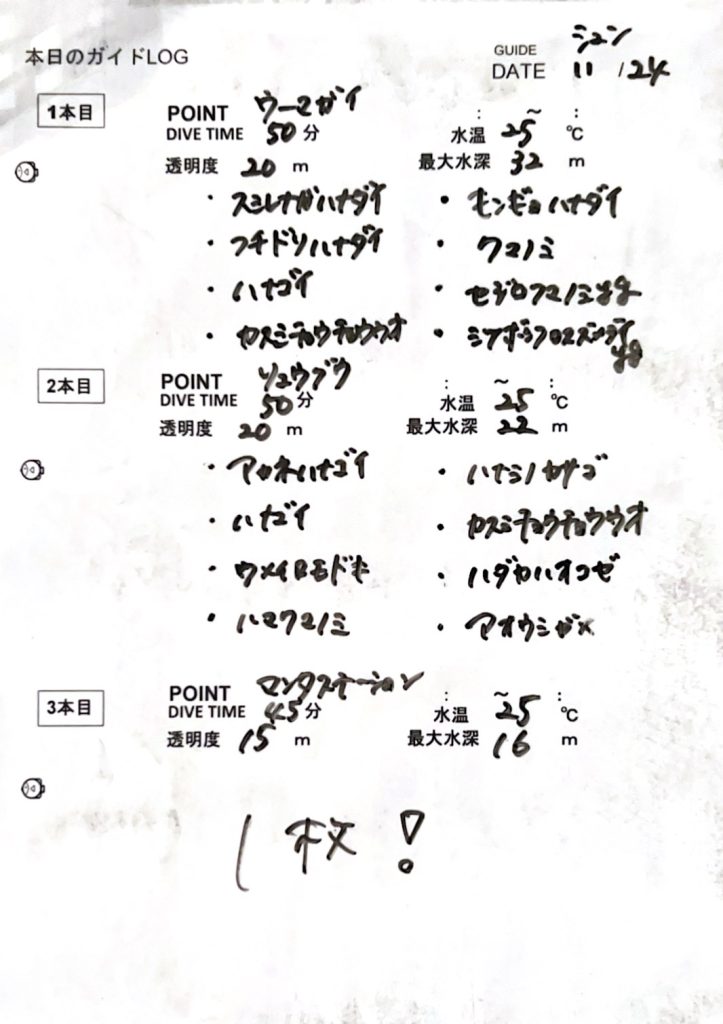 本日のガイドLOG
GUIDE ジュン
DATE 11 / 24
1本目
POINT ウーマガイ
: ~ :
DIVE TIME 50 分
水温 25 ℃
透明度 20 m
最大水深 32 m
・スミレナガハナダイ ・モンヅキハナダイ
・フチドリハナダイ ・クマノミ
・ハナゴイ ・セジロクマノミyg
・カスミチョウチョウウオ ・ミツボシクロスズメダイ
yg
2本目
POINT リュウグウ
: ~ :
DIVE TIME 50 分
水温 25 ℃
透明度 20 m
最大水深 22 m
・アカネハナゴイ ・ハナミノカサゴ
・ハナゴイ ・カスミチョウチョウウオ
・ウメイロモドキ ・ハダカハオコゼ
・ハマクマノミ ・アオウミガメ
3本目
POINT マンタステーション
: ~ :
DIVE TIME 45 分
水温 25 ℃
透明度 15 m
最大水深 16 m
1枚!